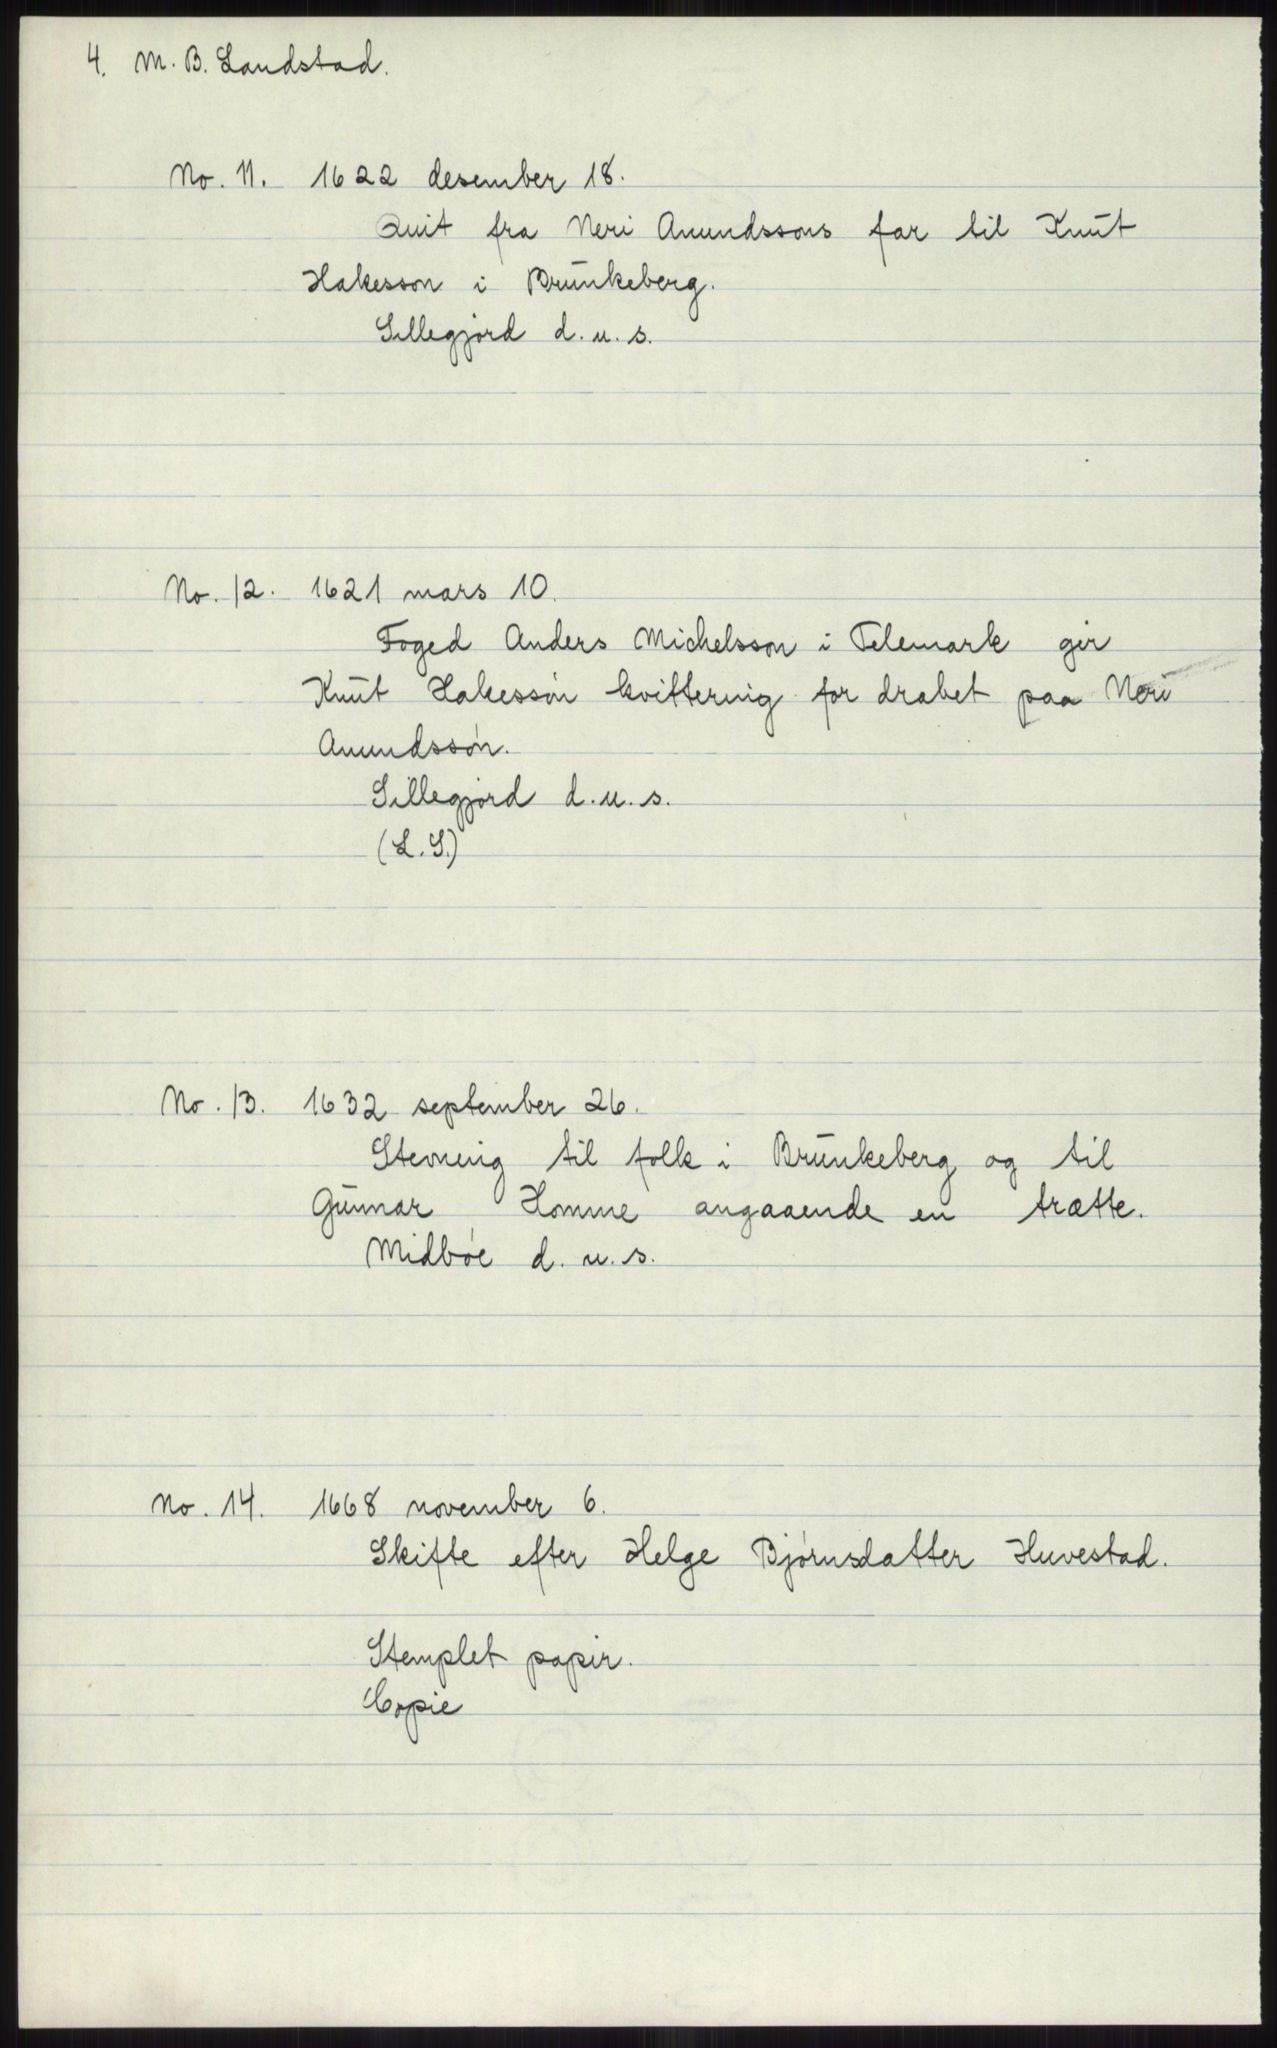 4. M. B. Landstad.
No. 11. 1622 desember 18.
Quit fra Neri Amundssons far til Knut
Hakesson i Brunkeberg.
Sillegjord d. u. s.
No. 12. 1621 mars 10.
Foged Anders Michelsson i Telemark gir
Knut Hakessøn kvittering for drabet paa Neri
Amundssøn.
Sillegjord d. u. s.
(L. S.)
No. 13. 1632 september 26.
Stevning til folk i Brunkeberg og til
Gunnar Homme angaaende en trætte.
Midbøe d. u. s.
No. 14. 1668 november 6.
Skifte efter Helge Bjørnsdatter Huvestad.
Stemplet papir.
Copie